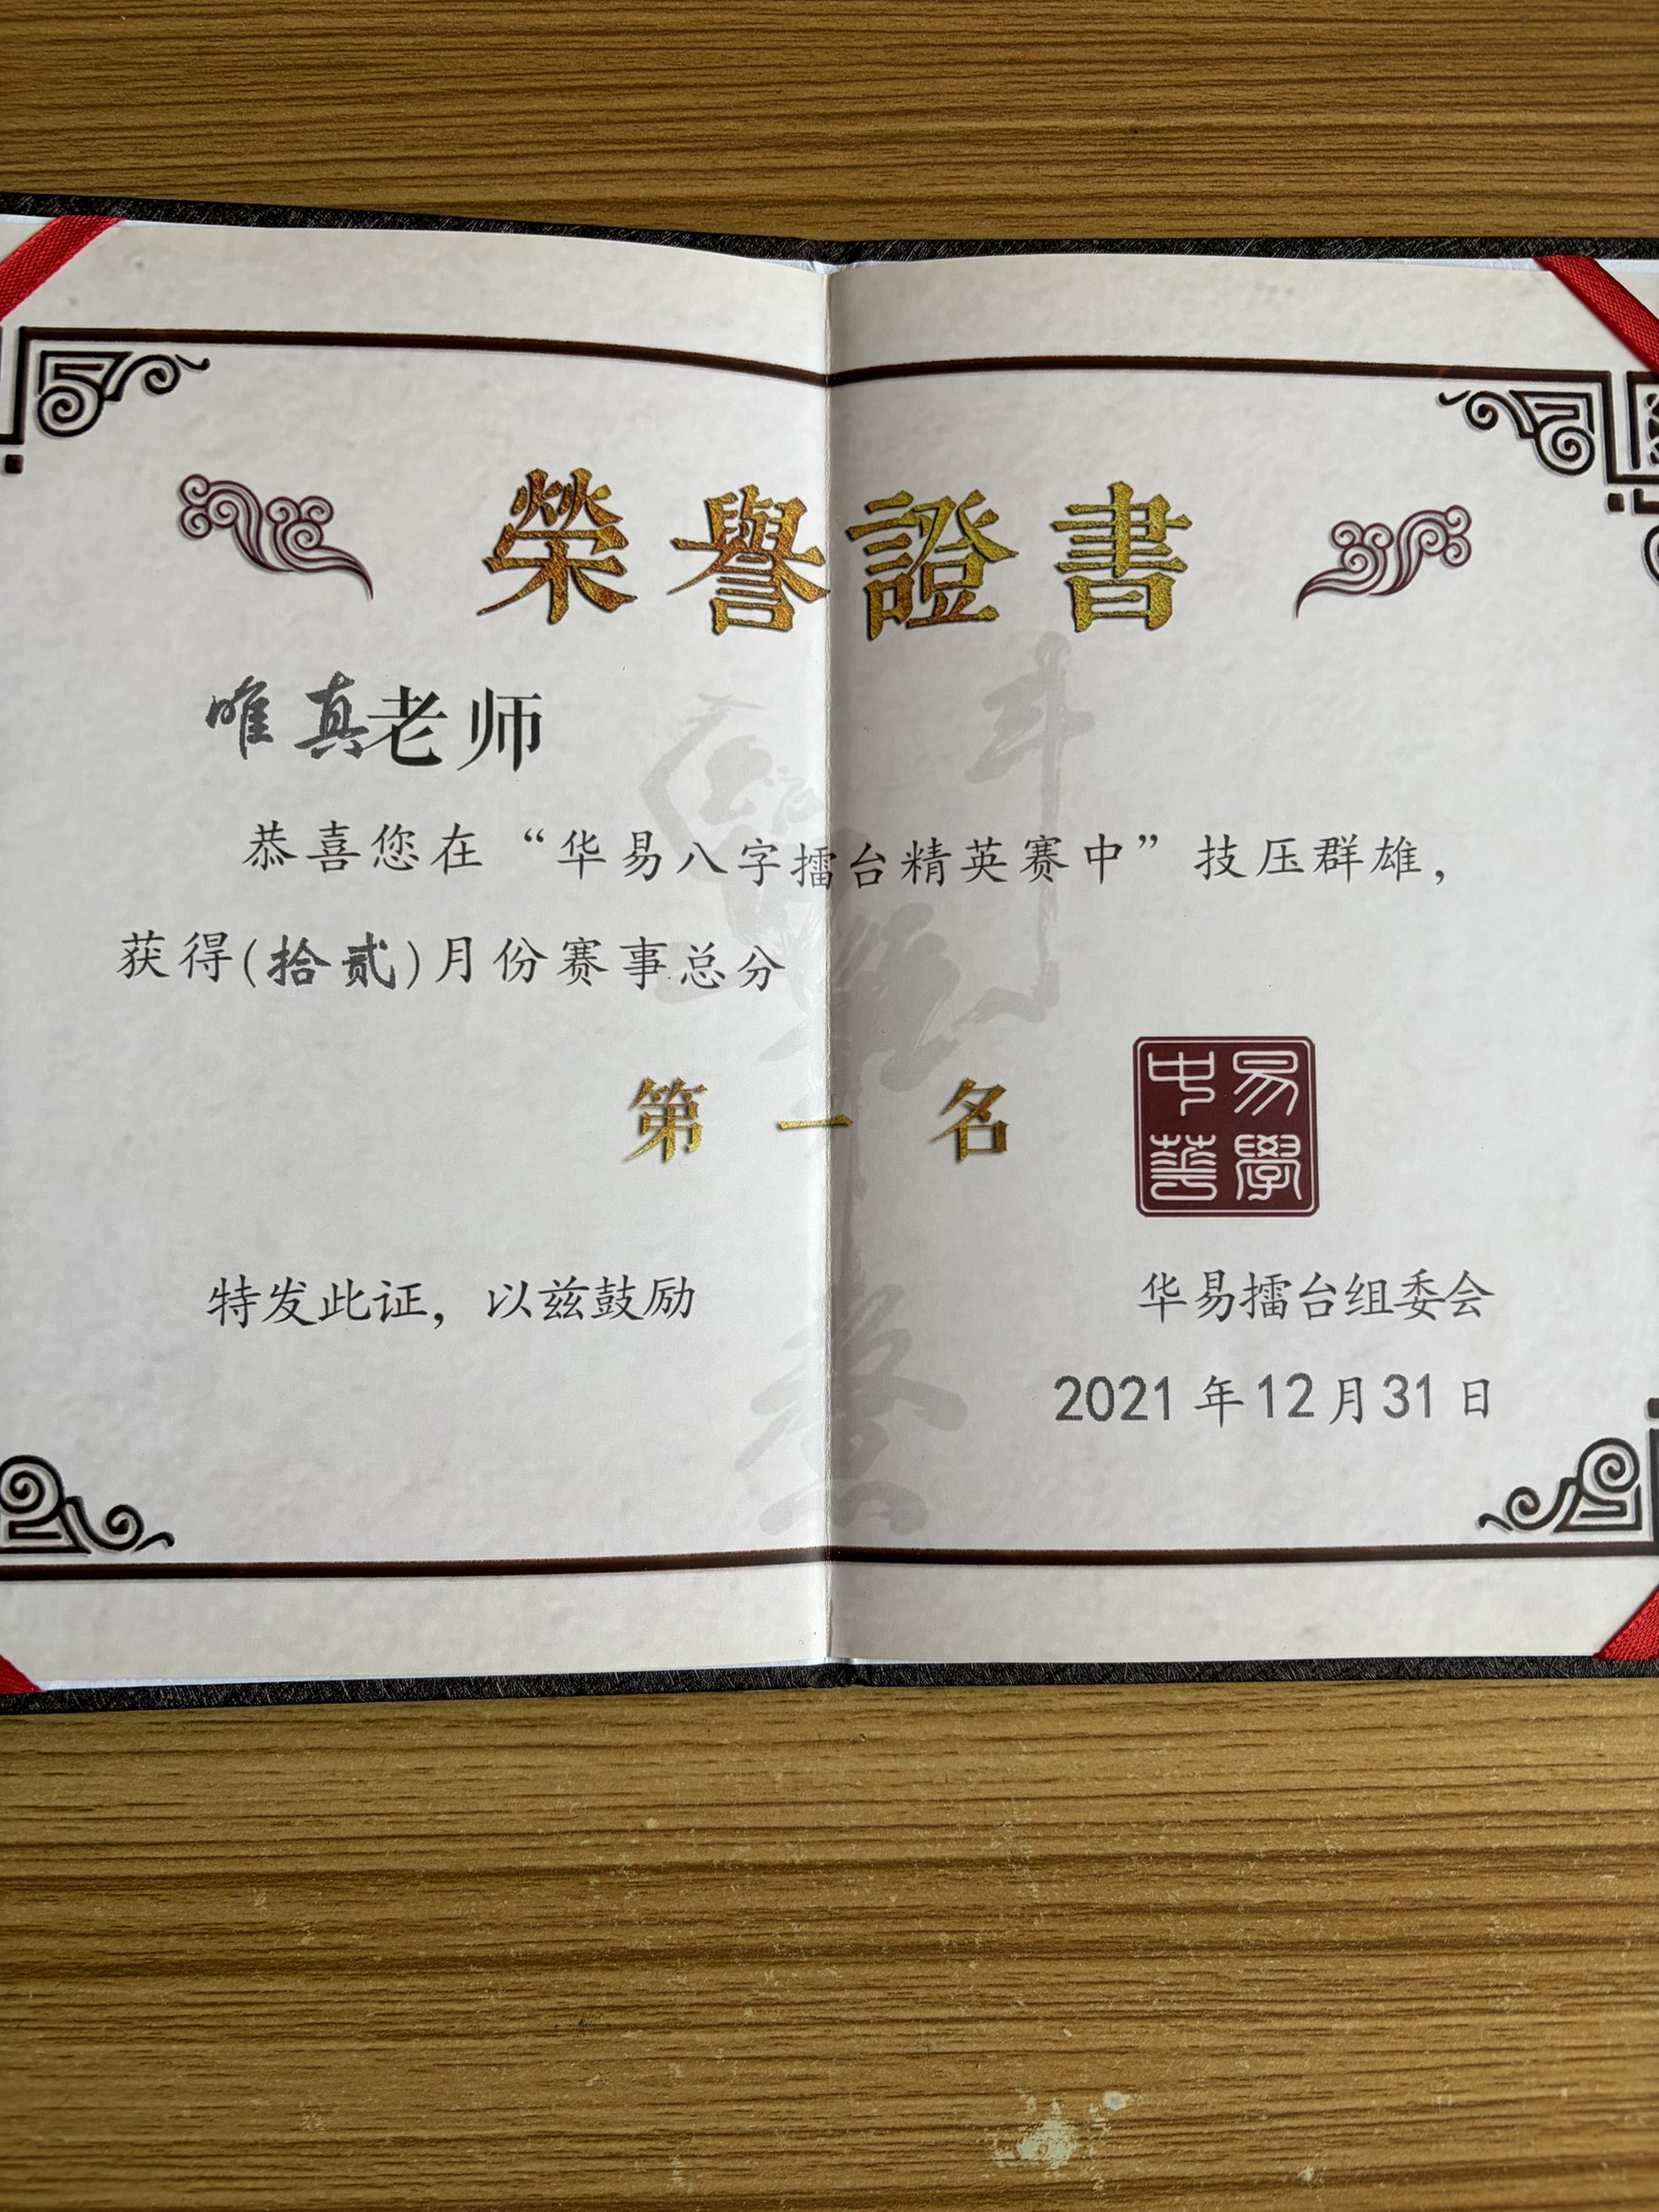 榮譽證書
唯真老师
恭喜您在“华易八字擂台精英赛中”技压群雄，
获得(拾贰)月份赛事总分
第一名
中华
易學
特发此证，以兹鼓励
华易擂台组委会
2021年12月31日